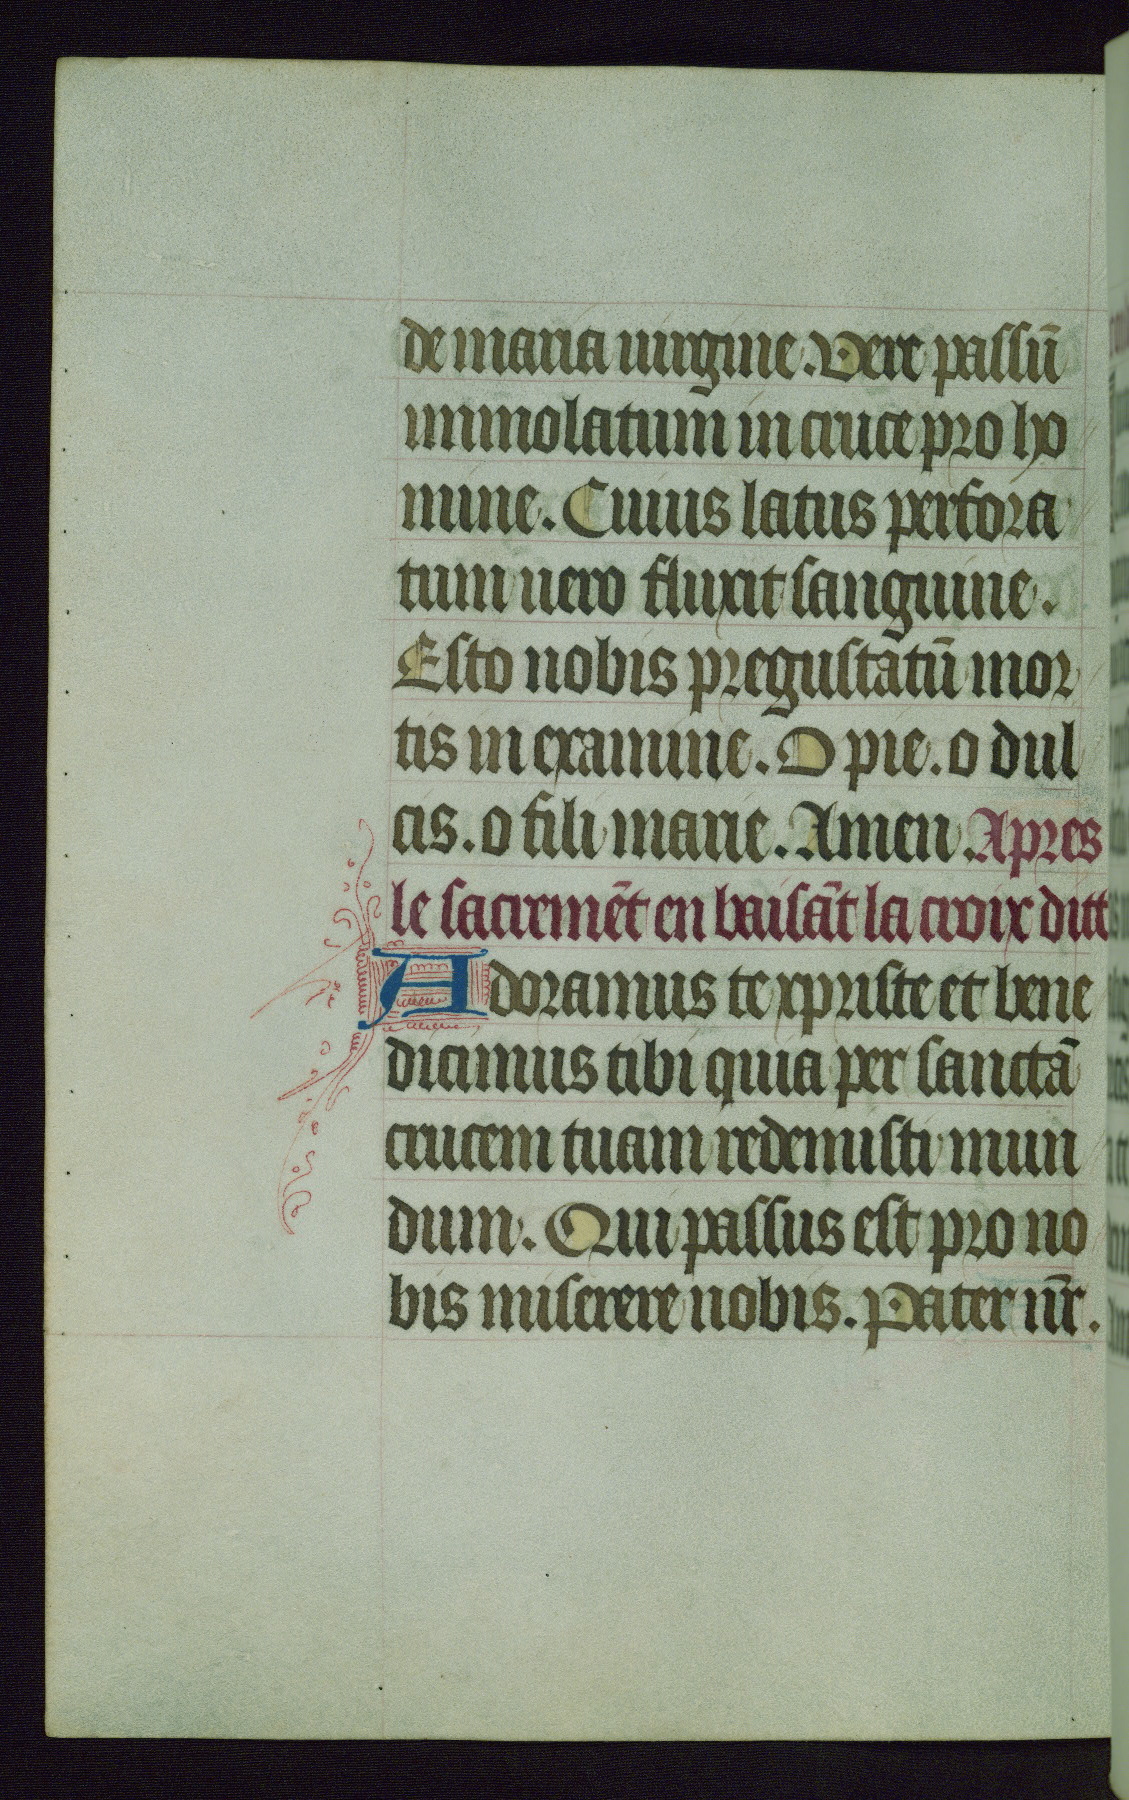 de maria uirgine. Vere passū
immolatum in cruce pro ho
mine. Cuius latus perfora
tum uero fluxit sanguine.
Esto nobis pregustatū mor
tis in examine. O pie. o dul
cis. o fili marie. Amen. Apres
le sacremēt en baisāt la croix ditt
Adoramus te xpriste et bene
dicimus tibi quia per sanctā
crucem tuam redemisti mun
dum. Qui passus est pro no
bis miserere nobis. Pater nr̄.